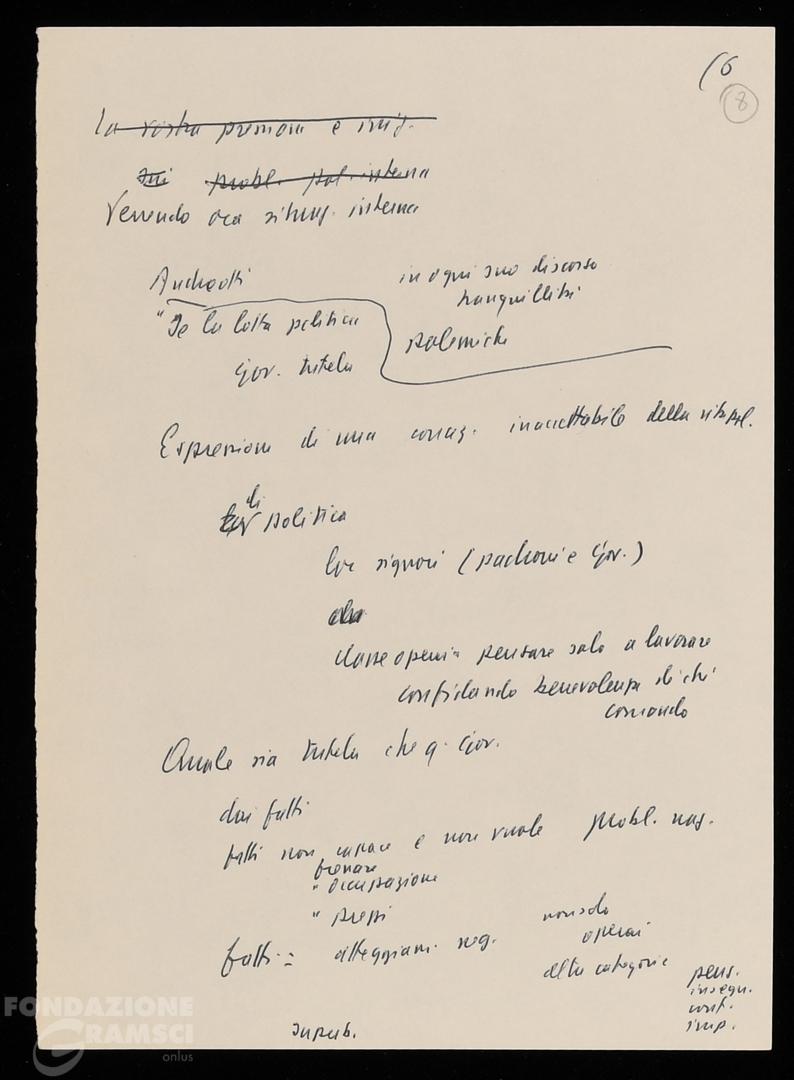 (6
8
La vostra pressione è inig.
sui probl. pol. interna
Venendo ora situaz. interna
Andreotti
in ogni suo discorso
tranquillità
"Se la lotta politica
polemiche
Gov. tutela
Espressione di una concez. inaccettabile della vita pol.
di
politica
lor signori (padroni e Gov.)
classe operaia pensare solo a lavorare
confidando benevolenza di chi
comando
Quale sia tutela che q. Gov.
dai fatti
fatti non capace e non vuole probl. naz.
frenare
" occupazione
" prezzi
non solo
operai
fatti: atteggiam. neg.
altre categorie
pens.
insegn.
cont.
imp.
FONDAZIONE
GRAMSCI
onlus